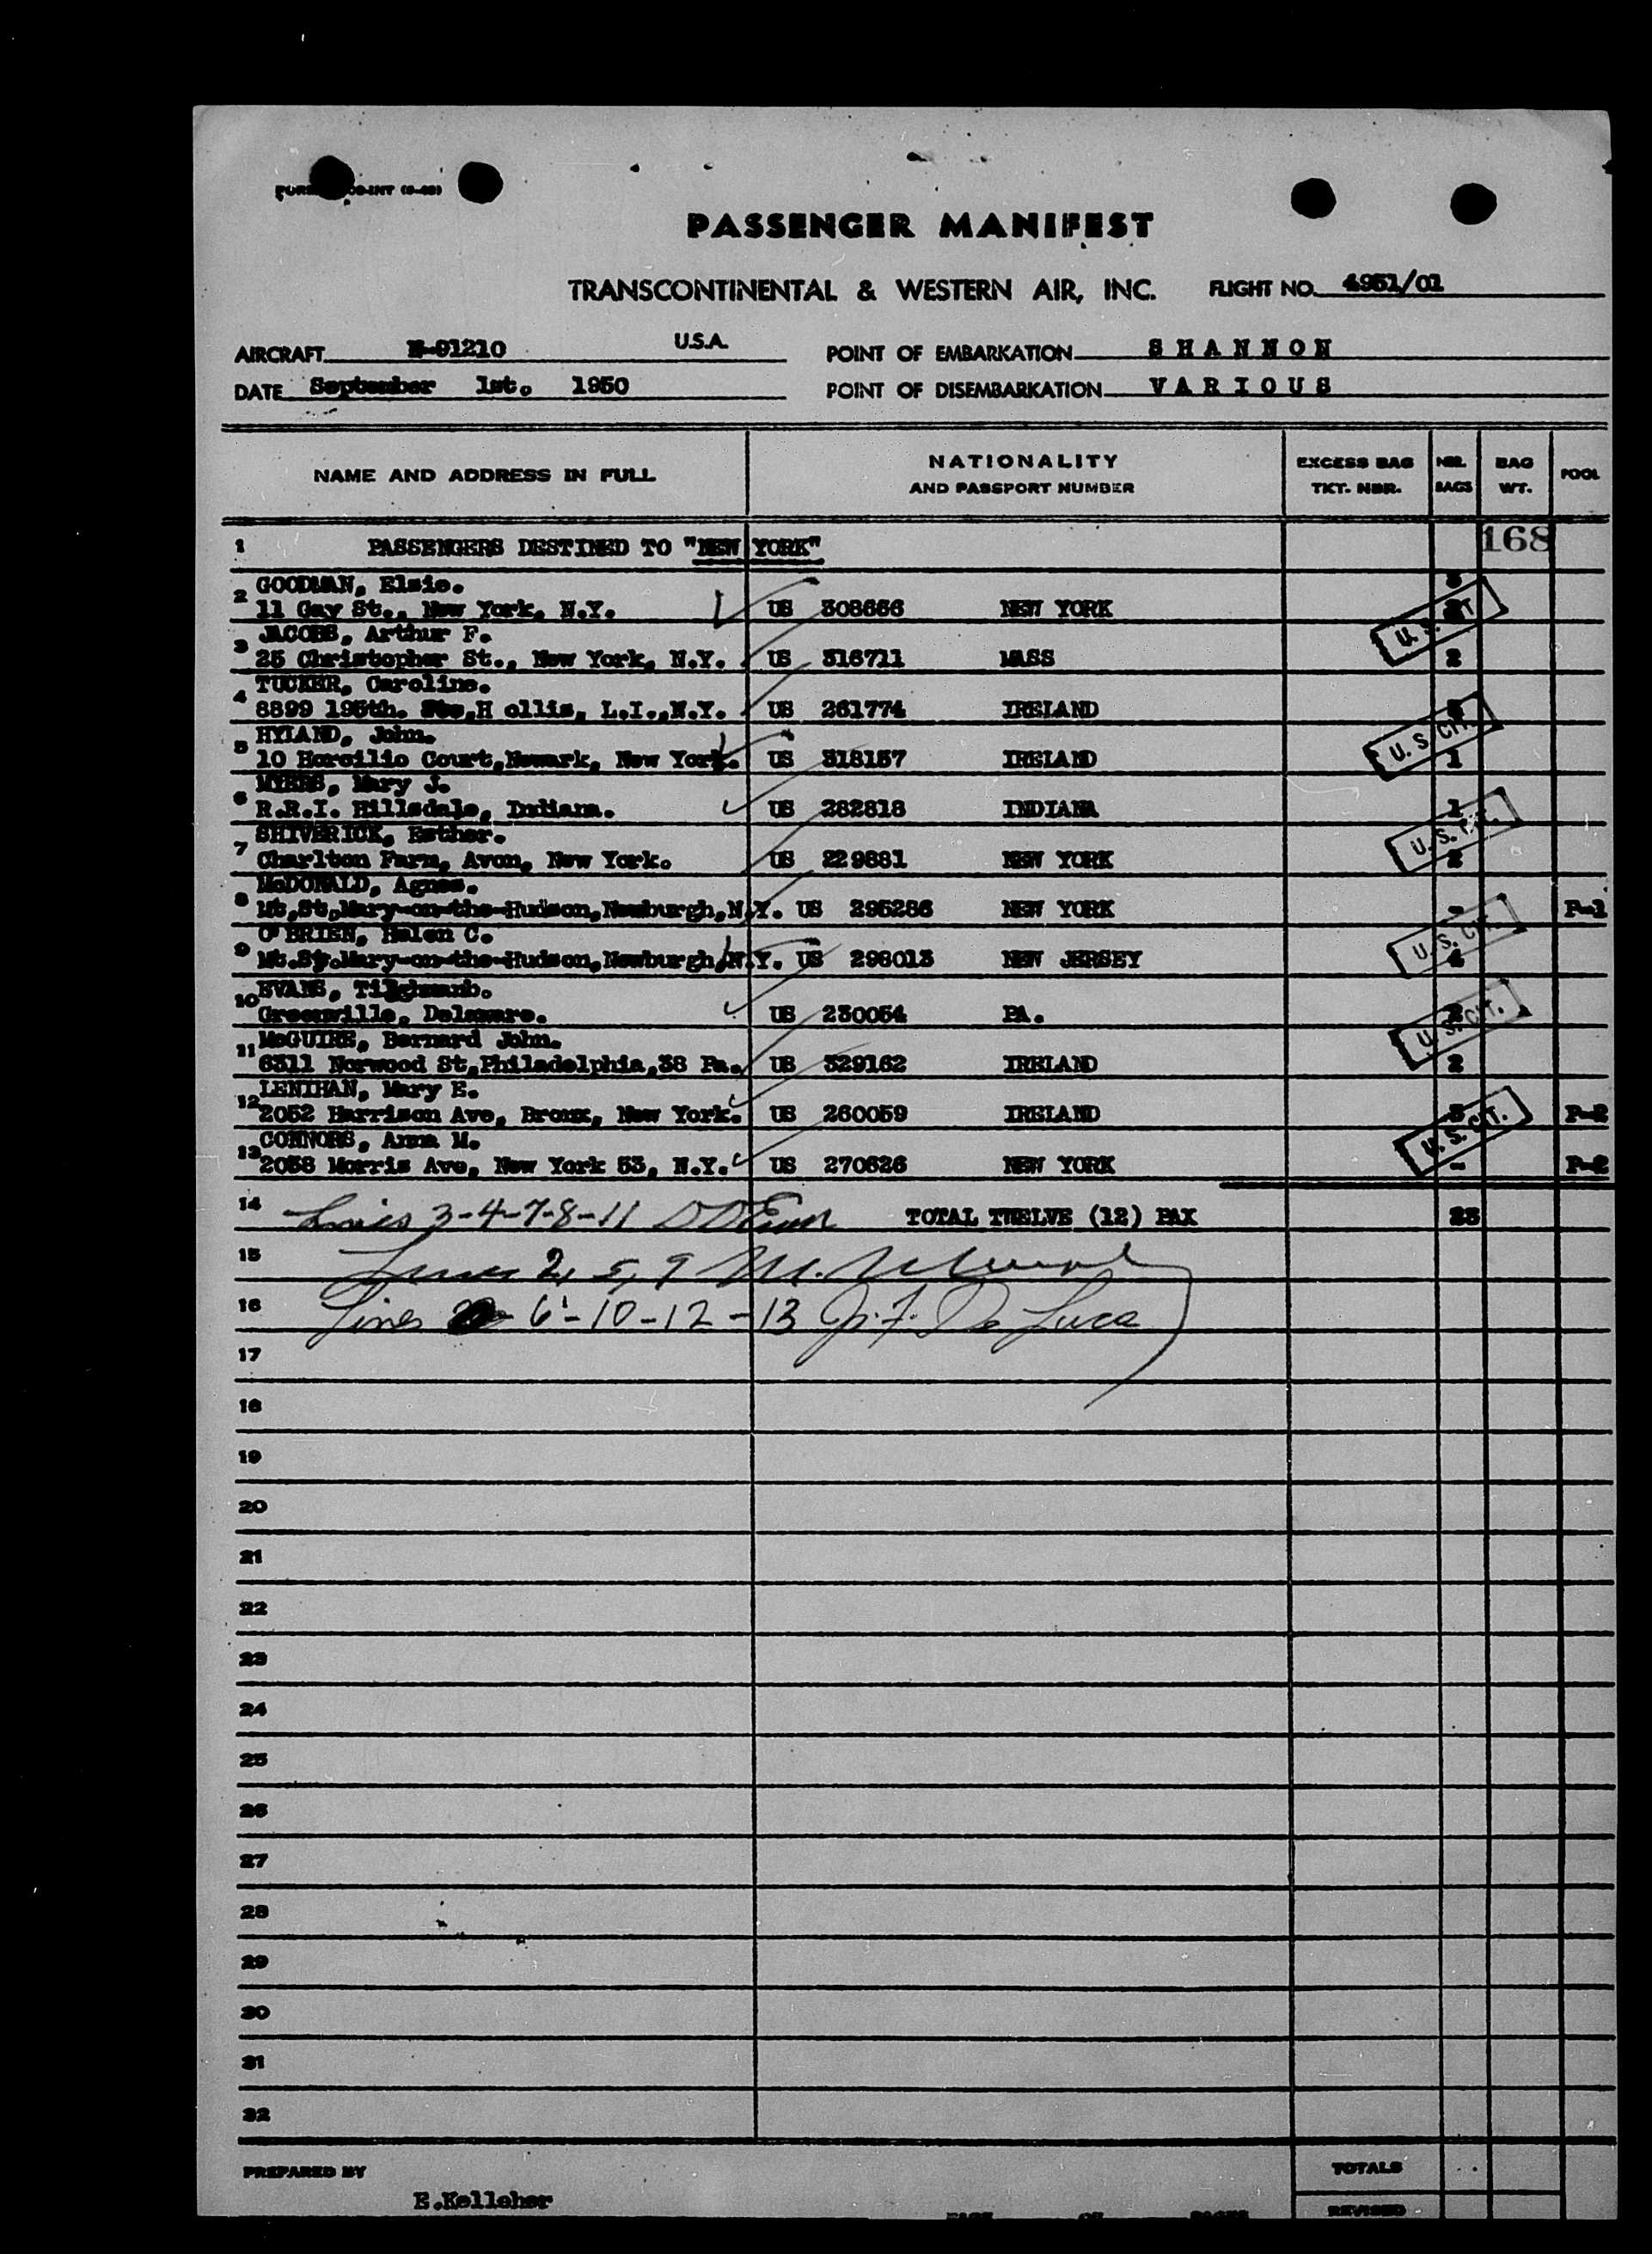 PASSENGER MANIFEST
TRANSCONTINENTAL & WESTERN AIR, INC. FLIGHT NO. 4951/01
AIRCRAFT N-91210 U.S.A. POINT OF EMBARKATION SHANNON
DATE September 1st. 1950 POINT OF DISEMBARKATION VARIOUS
NAME AND ADDRESS IN FULL NATIONALITY AND PASSPORT NUMBER EXCESS BAG TKT. NBR. NBR. BAGS BAG WT. POOL
1 PASSENGERS DESTINED TO "NEW YORK" 168
GOODMAN, Elsie.
2 11 Gay St., New York, N.Y. US 308666 NEW YORK
JACOBS, Arthur F.
3 25 Christopher St., New York, N.Y. US 316711 MASS 2
TUCKER, Caroline.
4 8899 195th. H ollis, L.I.,N.Y. US 261774 IRELAND
HYLAND, John.
5 10 Court,Newark, New York. US 318157 IRELAND 1
MYERS, Mary J.
6 R.R.I. Hillsdale, Indiana. US 282818 INDIANA 1
SHIVERICK, Esther.
7 Charlton Farm, Avon, New York. US 229881 NEW YORK 2
McDONALD, Agnes.
8 Mt,St,Mary-on-the-Hudson,Newburgh,N.Y. US 295286 NEW YORK - P-1
O'BRIEN, Helen C.
9 Mt.St.Mary-on-the-Hudson,Newburgh,N.Y. US 298013 NEW JERSEY 4
EVANS,
10 Greenville, Delaware. US 230054 PA. 2
McGUIRE, Bernard John.
11 6311 Norwood St,Philadelphia,38 Pa. US 329162 IRELAND 2
LENIHAN, Mary E.
12 2052 Harrison Ave, Bronx, New York. US 260059 IRELAND 3 P-2
CONNORS, Anna M.
13 2058 Morris Ave, New York 53, N.Y. US 270626 NEW YORK - P-2
U. S. CIT.
U. S. CIT.
U. S. CIT.
U. S. CIT.
U. S. CIT.
U. S. CIT.
14 Lines 3-4-7-8-11 TOTAL TWELVE (12) PAX 23
15 Lines 2, 5, 9
16 Lines 6-10-12-13 J. F. De Luca
17
18
19
20
21
22
23
24
25
26
27
28
29
30
31
32
PREPARED BY TOTALS
E.Kelleher
REVISED